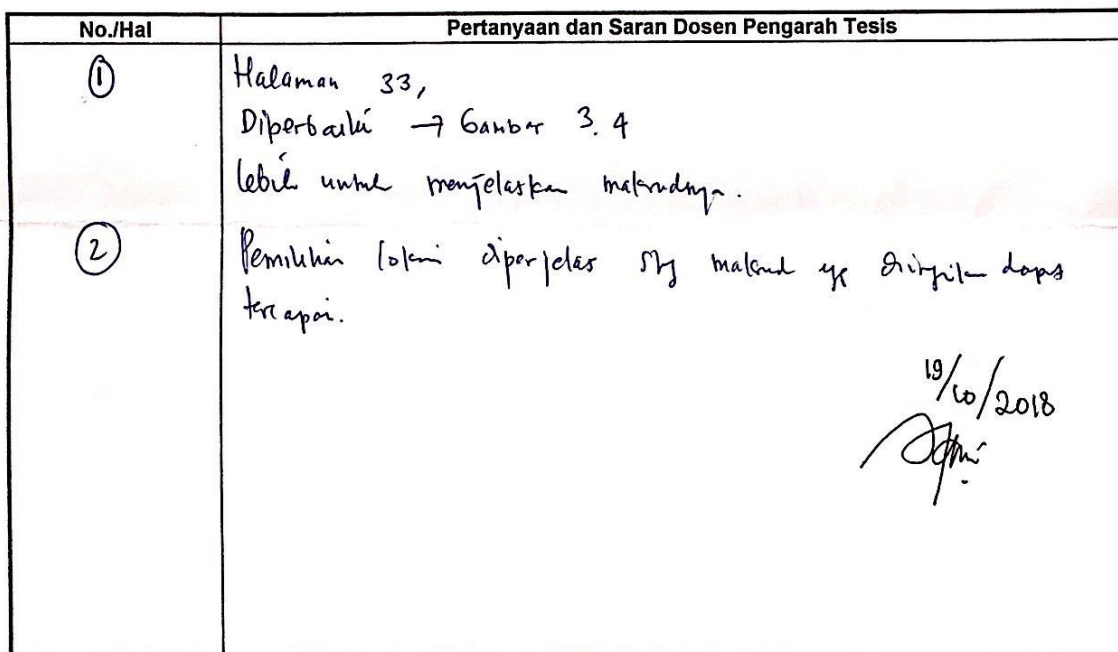 No./Hal
Pertanyaan dan Saran Dosen Pengarah Tesis
1
Halaman 33,
Diperbaiki → Gambar 3.4
lebih untuk menjelaskan maksudnya.
2
Pemilihan lokasi diperjelas shg maksud yg diinginkan dapat
tercapai.
19/10/2018